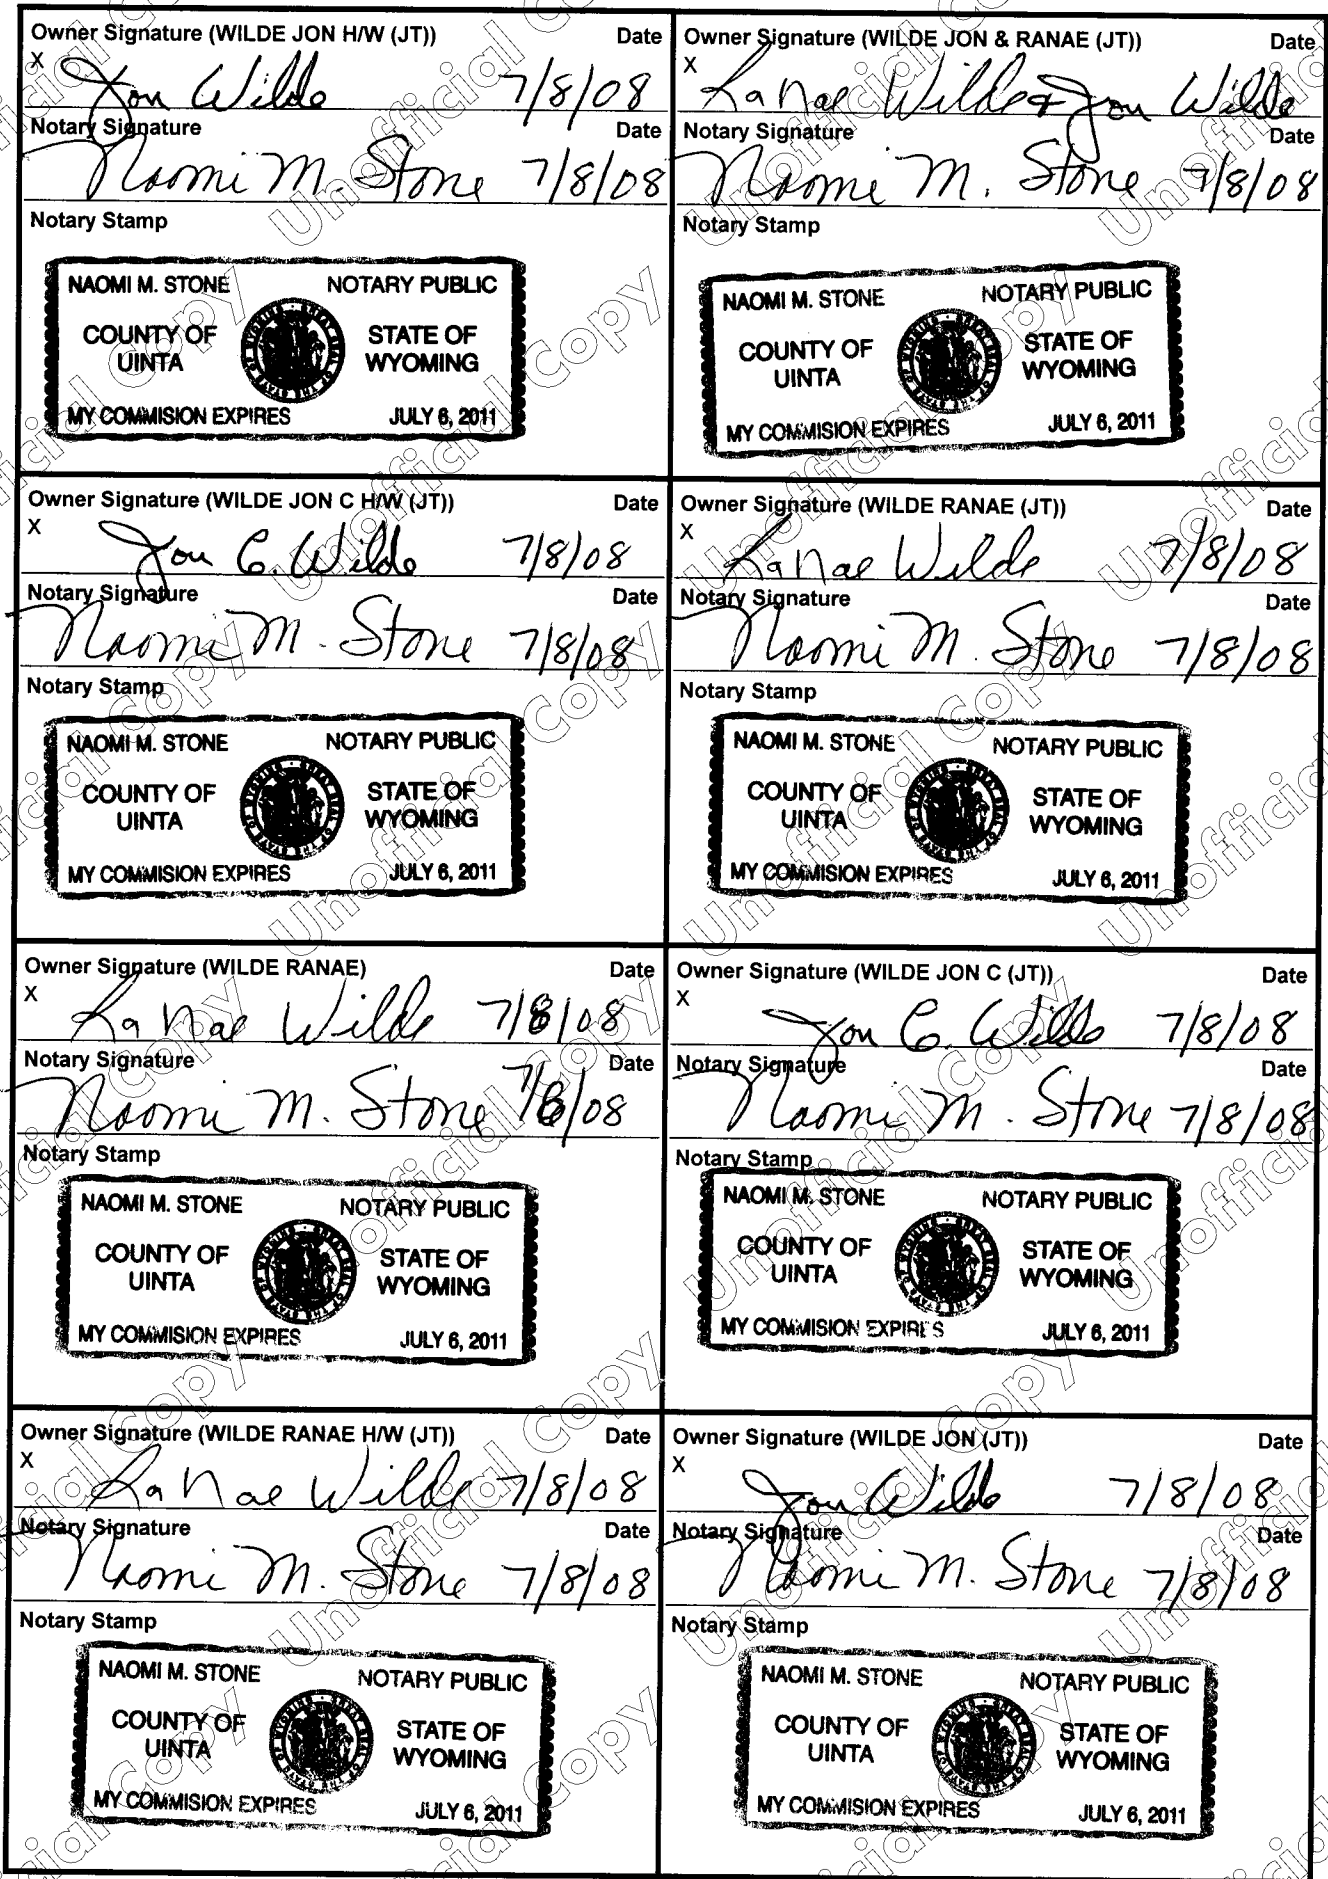 Owner Signature (WILDE JON H/W (JT)) Date
X Jon Wilde 7/8/08
Notary Signature Date
Naomi M. Stone 7/8/08
Notary Stamp
NAOMI M. STONE NOTARY PUBLIC
COUNTY OF UINTA STATE OF WYOMING
MY COMMISION EXPIRES JULY 6, 2011
Owner Signature (WILDE JON & RANAE (JT)) Date
X RaNae Wilde & Jon Wilde
Notary Signature Date
Naomi M. Stone 7/8/08
Notary Stamp
NAOMI M. STONE NOTARY PUBLIC
COUNTY OF UINTA STATE OF WYOMING
MY COMMISION EXPIRES JULY 6, 2011
Owner Signature (WILDE JON C H/W (JT)) Date
X Jon C. Wilde 7/8/08
Notary Signature Date
Naomi M. Stone 7/8/08
Notary Stamp
NAOMI M. STONE NOTARY PUBLIC
COUNTY OF UINTA STATE OF WYOMING
MY COMMISION EXPIRES JULY 6, 2011
Owner Signature (WILDE RANAE (JT)) Date
X RaNae Wilde 7/8/08
Notary Signature Date
Naomi M. Stone 7/8/08
Notary Stamp
NAOMI M. STONE NOTARY PUBLIC
COUNTY OF UINTA STATE OF WYOMING
MY COMMISION EXPIRES JULY 6, 2011
Owner Signature (WILDE RANAE) Date
X RaNae Wilde 7/8/08
Notary Signature Date
Naomi M. Stone 7/8/08
Notary Stamp
NAOMI M. STONE NOTARY PUBLIC
COUNTY OF UINTA STATE OF WYOMING
MY COMMISION EXPIRES JULY 6, 2011
Owner Signature (WILDE JON C (JT)) Date
X Jon C. Wilde 7/8/08
Notary Signature Date
Naomi M. Stone 7/8/08
Notary Stamp
NAOMI M. STONE NOTARY PUBLIC
COUNTY OF UINTA STATE OF WYOMING
MY COMMISION EXPIRES JULY 6, 2011
Owner Signature (WILDE RANAE H/W (JT)) Date
X RaNae Wilde 7/8/08
Notary Signature Date
Naomi M. Stone 7/8/08
Notary Stamp
NAOMI M. STONE NOTARY PUBLIC
COUNTY OF UINTA STATE OF WYOMING
MY COMMISION EXPIRES JULY 6, 2011
Owner Signature (WILDE JON (JT)) Date
X Jon Wilde 7/8/08
Notary Signature Date
Naomi M. Stone 7/8/08
Notary Stamp
NAOMI M. STONE NOTARY PUBLIC
COUNTY OF UINTA STATE OF WYOMING
MY COMMISION EXPIRES JULY 6, 2011
Unofficial Copy